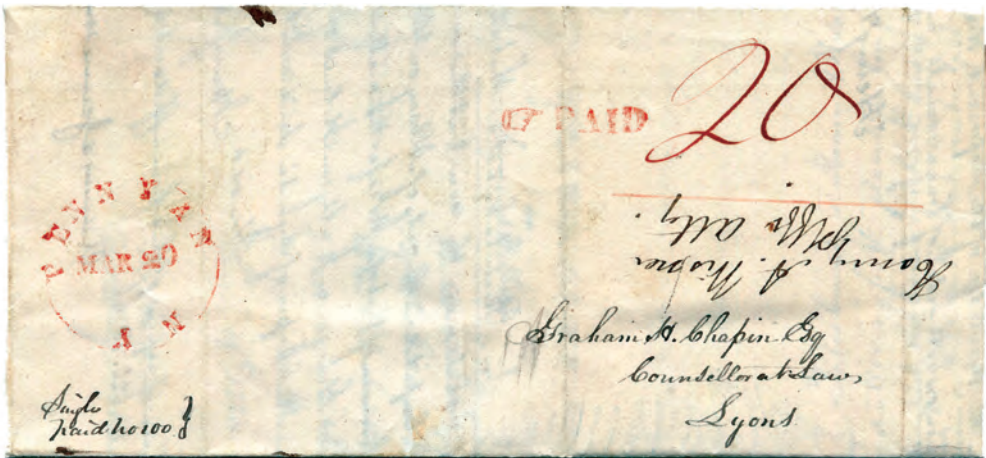 ☞ PAID 20
PENN YAN
MAR 20
N Y
Henry A.
Plffs. Atty.
Graham H. Chapin Esq
Counsellor at Law,
Lyons
Single
Paid